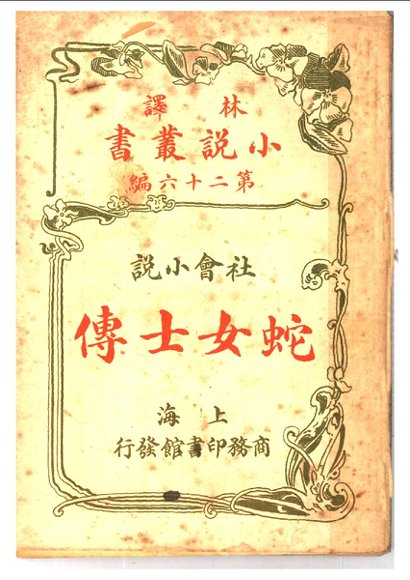 林譯
小説叢書
第二十六編
社會小説
蛇女士傳
上海
商務印書館發行